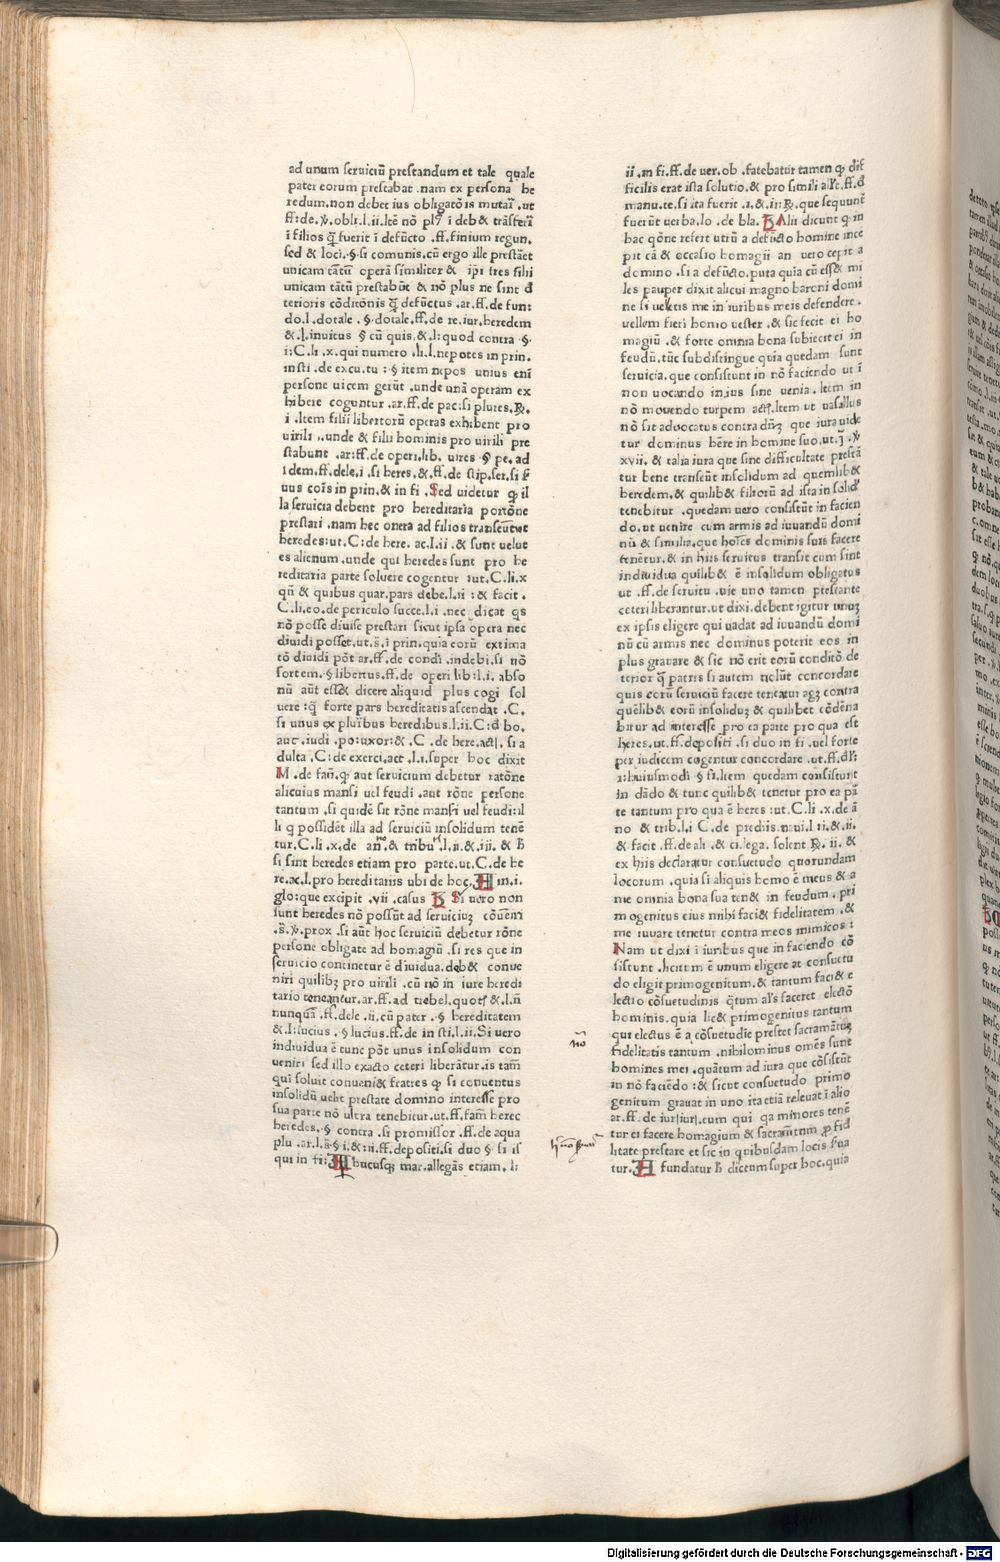 ad unum seruiciū prestandum et tale quale
pater eorum prestabat .nam ex persona he
redum.non debet ius obligatōis mutari .ut
ff:de.ꝟ.obli.l.ii.Itē nō pl⁹ ī deb& trāsferī
ī filios q̄ fuerit ī defūcto .ff.finium regun.
sed & loci.§.si comunis.cū ergo ille prestāet
unicam cātū operā similiter & ipi tres filii
unicam tātū prestabūt & nō plus ne sint d
terioris cōditōnis q̄ defūctus .ar.ff.de fun:
do.l.dotale .§.dotale.ff.de re.iur.heredem
&.l.inuitus § cū quis.&.l:quod contra .§.
i:C.li .x.qui numero .li.l.nepotes in prin.
insti .de excu.tu : § item nepos unius eni
persone uicem gerūt .unde unā operam ex
hibere coguntur .ar.ff.de pac:si plures.℞.
i .Item filii libertorū operas exhibent pro
uirili ..unde & filii hominis pro uirili pre
stabunt .ar:ff.de operi.lib. uires § pe. ad
idem.ff.dele.i .si heres.&.ff.de stip.ser.si
uus cois in prin.& in fi .Sed uidetur ꝙ il
la seruicia debent pro hereditaria portōne
prestari .nam hec onera ad filios transeūt
heredes:ut.C:de here. ac.l.ii .& sunt uelut
es alienum .unde qui heredes sunt pro he
reditaria parte soluere cogentur :ut.C.li.x
qn̄ & quibus quar.pars debe.l.ii : & facit .
C.li.eo.de periculo succe.l.i .nec dicat qs
nō posse diuise prestari sicut ipsa opera nec
diuidi posset.ut.s̄.ī prin.quia eorū extima
tō diuidi pōt ar.ff.de condi .indebi.si nō
sortem. § libertus.ff.de operi lib:l.i. abso
nū aūt ess& dicere aliquid plus cogi sol
uere :q̄ forte pars hereditatis ascendat .C.
si unus ex pluribus heredibus.l.ii.C:d bo.
auc .iudi .po:uxor:& .C .de here.act. si a
dulta .C:de exerci.act .l.i.super hoc dixit
M .de fan̄.ꝙ aut seruicium debetur ratōne
alicuius mansi uel feudi .aut rōne persone
tantum .si quidē sit rōne mansi uel feudi:il
li q possidēt illa ad seruiciū insolidum tenē
tur.C.li .x.de an̄.& tribu.l.ii.& iii. & h̄
si sint heredes etiam pro parte.ut.C.de he
re.ac.l.pro hereditariis ubi de hoc.H in.i.
glo:que excipit .vii .casus Si uero non
sunt heredes nō possūt ad seruiciuȝ cōueni
.s̄.ꝟ.prox .si aūt hoc seruiciū debetur rōne
persone obligate ad homagiū .si res que in
seruicio continetur ē diuidua.deb& conue
niri quilibȝ pro uirili .cū nō in iure heredi
tario teneantur.ar.ff.ad trebel.quotꝭ &.l.ii
nunquā .ff.dele .ii.cū pater . § hereditatem
& .l:lucius . § lucius.ff.de in sti.l.ii.Si uero
indiuidua ē tunc pōt unus insolidum con
ueniri sed illo exacto ceteri liberātur.is tam̄
qui soluit conueni& fratres ꝙ si conuentus
insolidū uelit prestate domino interesse pro
sua parte nō ultra tenebitur.ut.ff.fam̄ herec
heredes. § contra .si promissor .ff.de aqua
plu .ar.l.s̄ § i.&:ii.ff.depositi.si duo § si is
qui in fti:H bucusqȝ mar.allegās etiam. l:
ii .in fi.ff.de uer.ob .fatebatur tamen ꝙ dif
ficilis erat ista solutio.& pro simili
manu.te.si ita fuerit .i.& .ii:℞.que sequunt̄
fuerūt uerba.lo .de bla. Alii dicunt ꝙ in
hac qōne refert utrū a defūcto homine ince
pit cā & occasio homagii an uero cepit a
domino .si a defūcto.puta quia cū ess& mi
les pauper dixit alicui magno baroni domi
ne si uelletis me in iuribus meis defendere .
uellem fieri homo uester .& sic fecit ei ho
magiū .& forte omnia bona subiecit ei in
feudū.tūc subdistingue quia quedam sunt
seruicia.que consistunt in nō faciendo ut ī
non uocando in.ius sine uenia . Item in
nō mouendo turpem act.Item ut uasallus
nō sit aduocatus contra dn̄ȝ que iura uide
tur dominus hēre in homine suo.ut.j .ꝟ
xvii. & talia iura que sine difficultate prestā
tur bene transeūt insolidum ad quemlib&
heredem.& quilib& filiorū ad ista in solid'
tenebitur .quedam uero consistūt in facien
do.ut uenire cum armis ad iuuandū domi
nū & similia.que hoīes dominis suis facere
tenētur.& in hiis seruitus transit cum sint
indiuidua quilib& ē insolidum obligatus
ut .ff.de seruitu .uie uno tamen prestante
ceteri liberantur.ut dixi.debent igitur unuȝ
ex ipsis eligere qui uadat ad iuuandū domi
nū cū armis nec dominus poterit eos in
plus grauare & sic nō erit eorū conditō de
terior q̄ patris si autem nolūt concordare
quis eorū seruiciū facere teneatur agȝ contra
quēlib& eorū insoliduȝ & quilibet cōdēna
bitur ad interesse pro ea parte pro qua est
heres.ut.ff.depositi .si duo in fi .uel forte
per iudicem cogentur concordare .ut.ff.
i:huiusmodi § si.Item quedam consistunt
in dādo & tunc quilib& tenetur pro ea pa
te tantum pro qua ē heres :ut.C.li .x.de ā
no & trib.l.i C.de prediis.naui.l ii.& .ii.
& facit .ff.de ali .& ci.lega. solent ℞. ii. &
ex hiis declaratur consuetudo quorundam
locorum .quia si aliquis homo ē meus & a
me omnia bona sua ten& in feudum .pri
mogenitus eius mihi faci& fidelitatem .&
me iuuare tenetur contra meos inimicos :
Nam ut dixi ī iuribus que in faciendo cō
sistunt .licitum ē unum eligere at consuetu
do eligit primogenitum.& tantum faci& e
lectio cōsuetudinis q̄tum al's faceret electō
hominis.quia lic& primogenitus tantum
qui electus ē a cōsuetudīe prestet sacramētuȝ
fidelitatis tantum .nihilominus omēs sunt
homines mei .quātum ad iura que cōsistūt
in nō faciēdo :& sicut consuetudo primo
genitum grauat in uno ita etiā releuat ī alio
ar.ff.de iuriurī.cum qui qa minores tenē
tur ei facere homagium & sacram̄tum ꝓ fid
litate prestare et sic in quibusdam locis
tur.H fundatur h̄ dictum super hoc.quia
nō
Digitalisierung gefördert durch die Deutsche Forschungsgemeinschaft - DFG